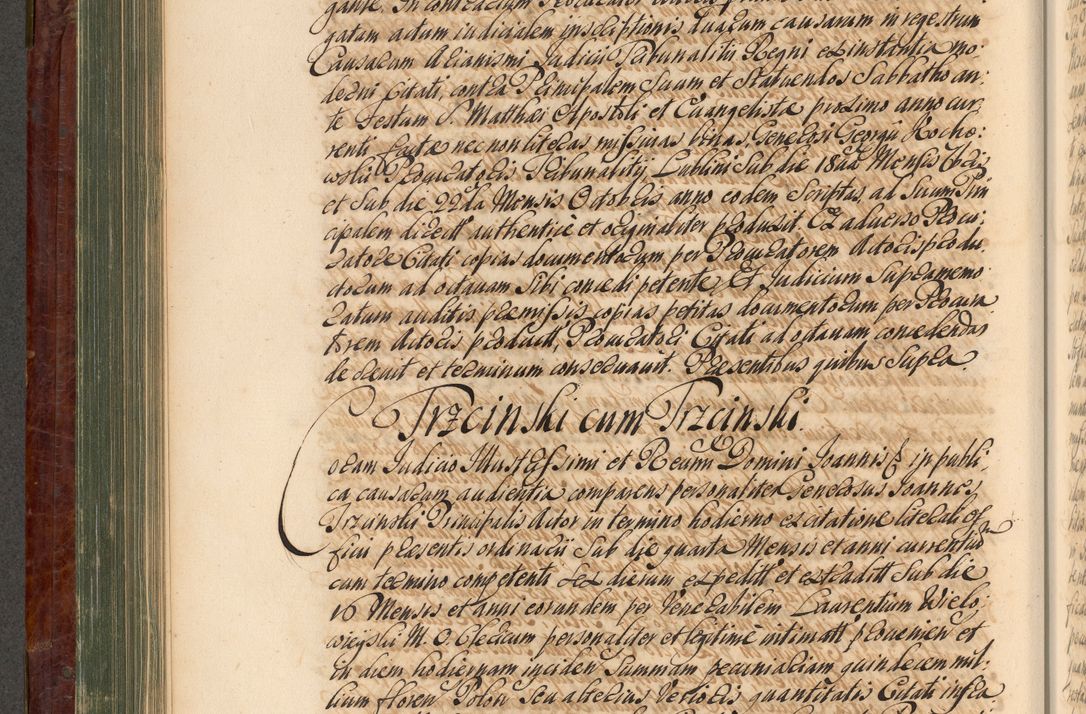 gatam actum iudicialem inscriptionis duarum causarum in regestrum
Causarum Arianismi Judicii Tribunalitii Regni ex instantia mo:
derni Citati, contra Principalem Suum et Statuendos Sabbatho an:
te Festum S. Matthæi Apostoli et Evangelistæ proximo anno cur:
renti factæ necnon literas missivas binas, Generosi Georgii Kocho:
wski Procuratoris Tribunalitii, Lublini sub die 18va Mensis 7bris
et Sub die 22da Mensis Octobris anno eodem Scriptas, ad Suum Prin
cipalem direct authenticè et originaliter produxit. Ex adverso Procu:
ratore Citati copias documentorum, per Procuratorem Actoris produ:
ctorum ad octavam Sibi concedi petente. Et Judicium Supramemo
ratum auditis præmissis, copias petitas documentorum per Procura
torem Actoris product, Procuratori Citati ad octavam concedendas
decrevit et terminum conservavit. Præsentibus quibus Supra.
Trzcinski cum Trzcinski.
Coram Judicio Illustrissimi et Reverendissimi Domini Joannis in publi:
ca causarum audientia comparens personaliter Generosus Joannes
Trzcinski Principalis Actor in termino hodierno ex citatione literali of
ficii præsentis ordinarii Sub die quarta Mensis et anni currentium
cum termino competenti sex dierum expedit et extradit Sub die
16 Mensis et anni eorundem per Venerabilem Laurentium Wielo:
wieyski M. O. Clericum personaliter et legitimè intimat, provenien et
in diem hodiernam inciden Summam pecuniariam quindecem mil:
lium floren Polon seu alterius verioris quantitatis Citati infra